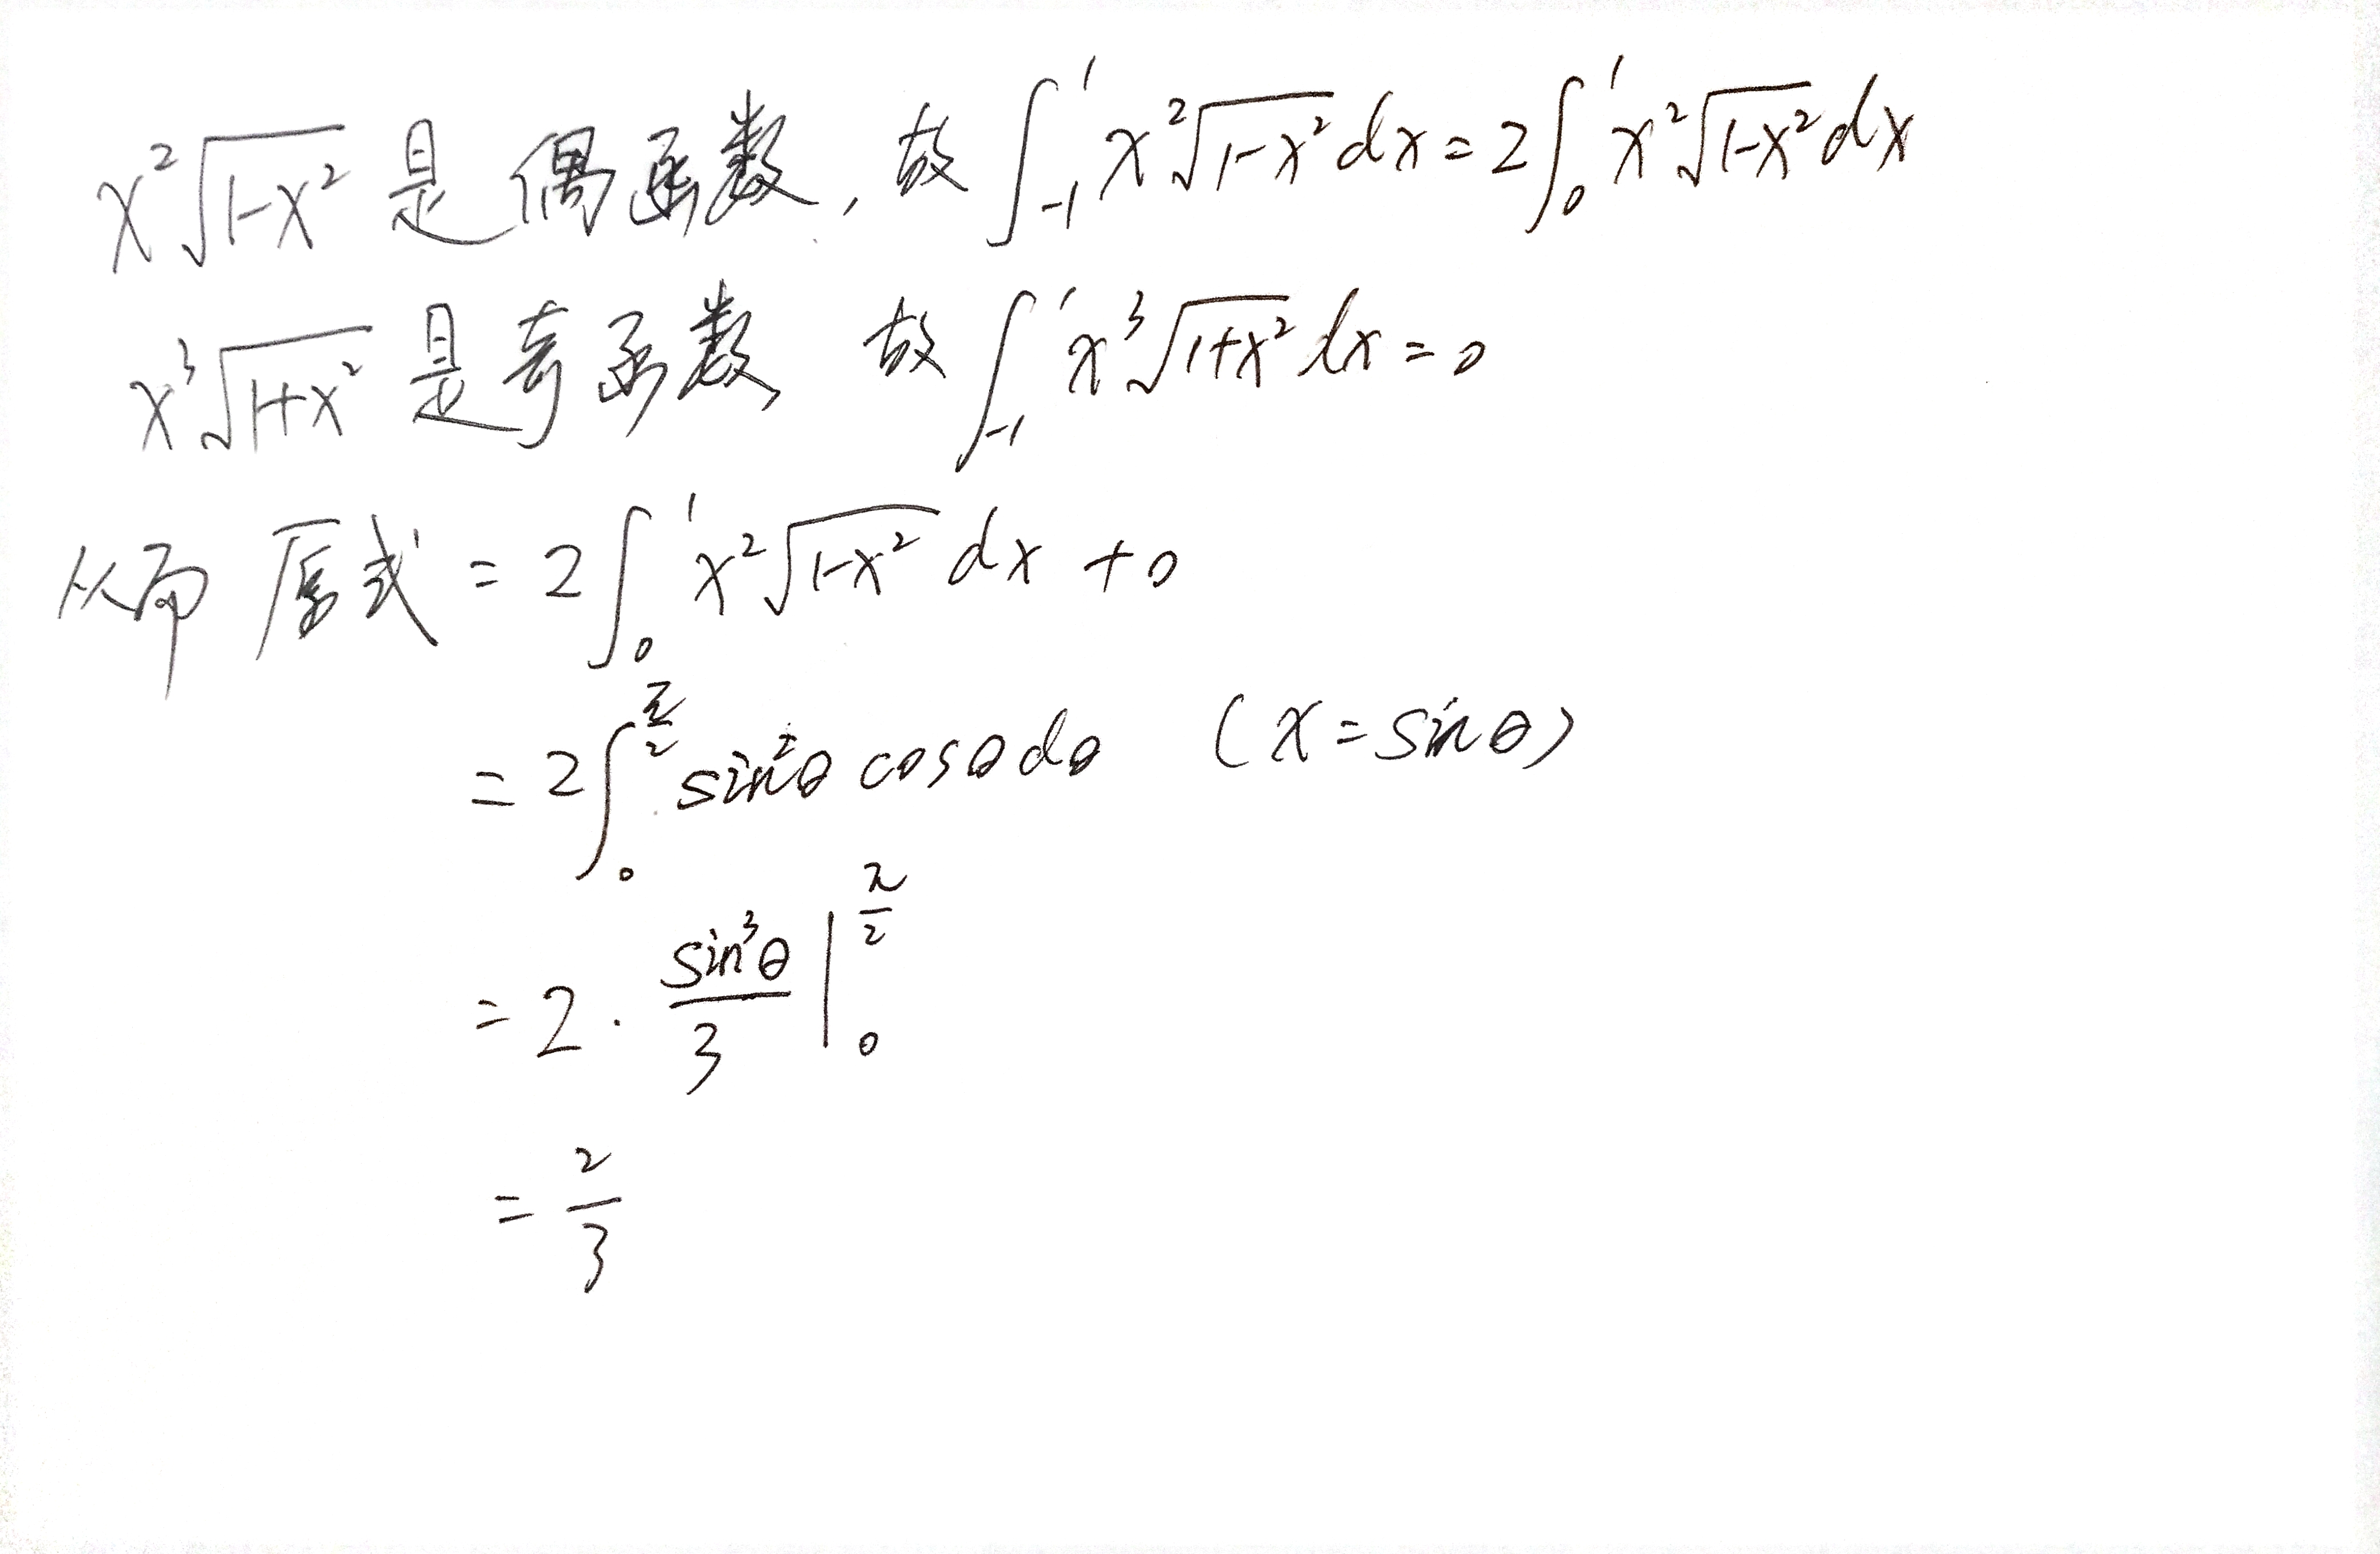 x²√(1-x²) 是偶函数, 故 ∫_{-1}^{1} x²√(1-x²) dx = 2∫_{0}^{1} x²√(1-x²) dx
x³√(1+x²) 是奇函数, 故 ∫_{-1}^{1} x³√(1+x²) dx = 0
从而 原式 = 2∫_{0}^{1} x²√(1-x²) dx + 0
= 2∫_{0}^{π/2} sin²θ cosθ dθ (x = sinθ)
= 2 · sin³θ/3 |_{0}^{π/2}
= 2/3